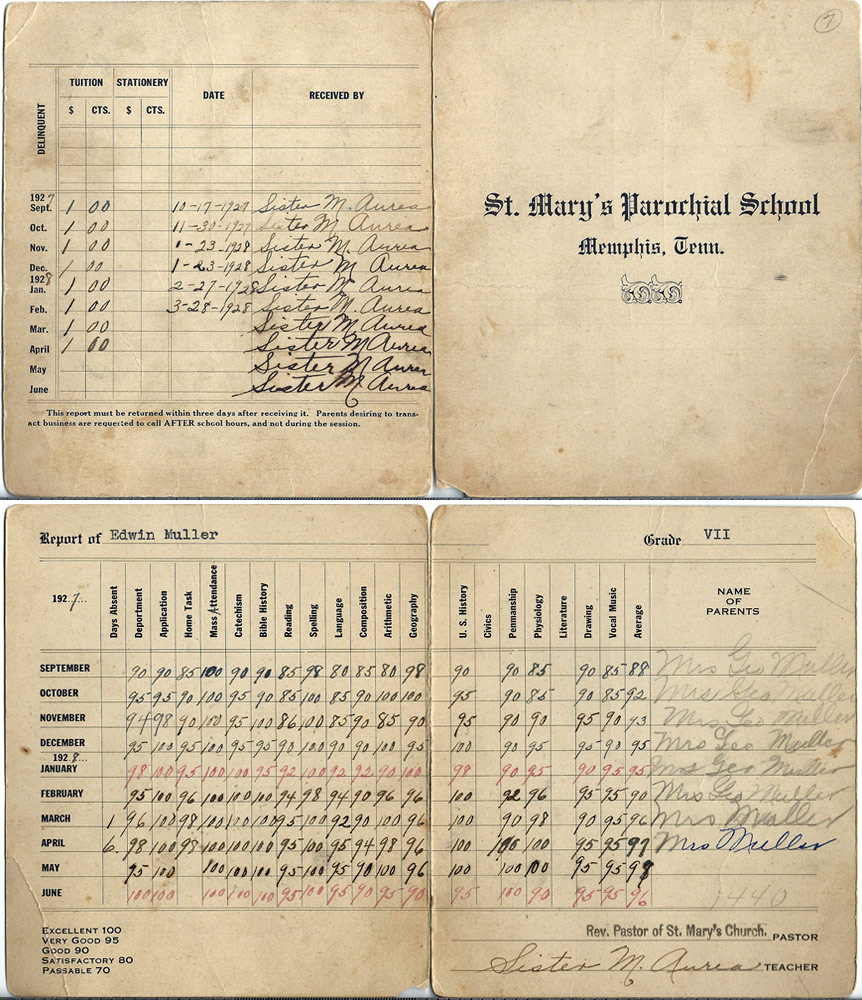 7
TUITION STATIONERY DATE RECEIVED BY
$ CTS. $ CTS.
DELINQUENT
1927
Sept. 1 00 10-17-1927 Sister M. Aurea
Oct. 1 00 11-30-1927 Sister M. Aurea
Nov. 1 00 1-23-1928 Sister M. Aurea
Dec. 1 00 1-23-1928 Sister M Aurea
1928
Jan. 1 00 2-27-1928 Sister M. Aurea
Feb. 1 00 3-28-1928 Sister M. Aurea
Mar. 1 00 Sister M Aurea
April 1 00 Sister M Aurea
May Sister M Aurea
June Sister M Aurea
This report must be returned within three days after receiving it. Parents desiring to trans-
act business are requested to call AFTER school hours, and not during the session.
St. Mary's Parochial School
Memphis, Tenn.
Report of Edwin Muller Grade VII
1927... Days Absent Deportment Application Home Task Mass Attendance Catechism Bible History Reading Spelling Language Composition Arithmetic Geography U. S. History Civics Penmanship Physiology Literature Drawing Vocal Music Average NAME
OF
PARENTS
SEPTEMBER 90 90 85 100 90 90 85 98 80 85 80 98 90 90 85 90 85 88 Mrs Geo Muller
OCTOBER 95 95 90 100 95 90 85 100 85 90 100 100 95 90 85 90 85 92 Mrs. Geo Muller
NOVEMBER 94 98 90 100 95 100 86 100 85 90 85 90 95 90 90 95 90 93 Mrs Geo Muller
DECEMBER 95 100 95 100 95 95 90 100 90 90 100 95 100 90 95 95 90 95 Mrs Geo Muller
1928...
JANUARY 98 100 95 100 100 95 92 100 92 92 90 100 98 90 95 90 95 95 Mrs Geo Muller
FEBRUARY 95 100 96 100 100 100 94 98 94 90 96 96 100 92 96 95 95 90 Mrs Geo Muller
MARCH 1 96 100 98 100 100 100 95 100 92 90 100 96 100 90 98 90 95 96 Mrs Muller
APRIL 6. 98 100 98 100 100 100 95 100 95 94 98 96 100 100 100 95 95 97 Mrs Muller
MAY 95 100 100 100 100 95 100 95 90 100 96 100 100 100 95 95 98
JUNE 100 100 100 100 100 95 100 95 90 95 90 95 100 90 95 95 96 1440
EXCELLENT 100
VERY GOOD 95
GOOD 90
SATISFACTORY 80
PASSABLE 70
Rev. Pastor of St. Mary's Church. PASTOR
Sister M. Aurea TEACHER